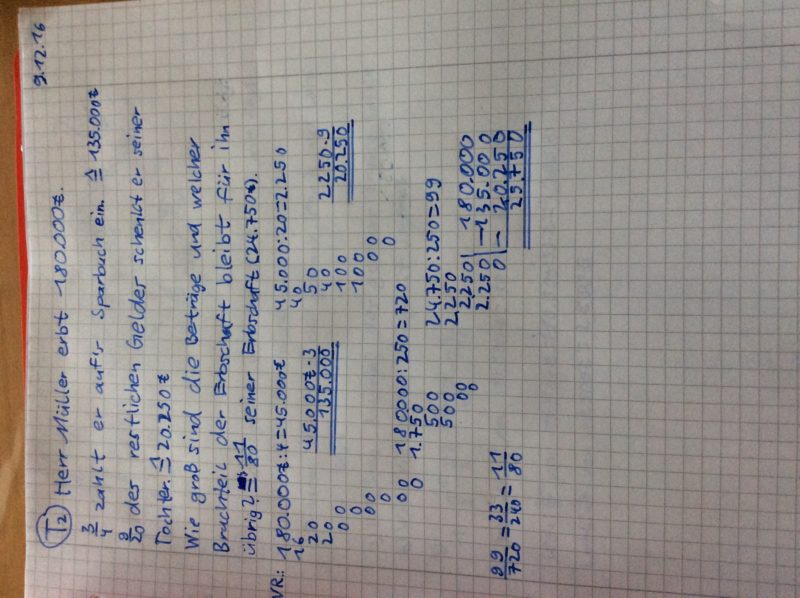 9.12.16
T2 Herr Müller erbt 180.000€.
3/4 zahlt er auf's Sparbuch ein. ≙ 135.000€
9/20 der restlichen Gelder schenkt er seiner
Tochter. ≙ 20.250€
Wie groß sind die Beträge und welcher
Bruchteil der Erbschaft bleibt für ihn
übrig? ≙ 11/80 seiner Erbschaft (24.750€).
NR.: 180.000€:4=45.000€
16
20
20
00
00
00
00
0
45.000€·3
135.000
45.000:20=2.250
40
50
40
100
100
00
00
0
2250·9
20.250
180000:250=720
1.750
500
500
00
00
24.750:250=99
2250
2250
2.250
0
180.000
-135.000
- 20.250
25.750
99/720=33/240=11/80